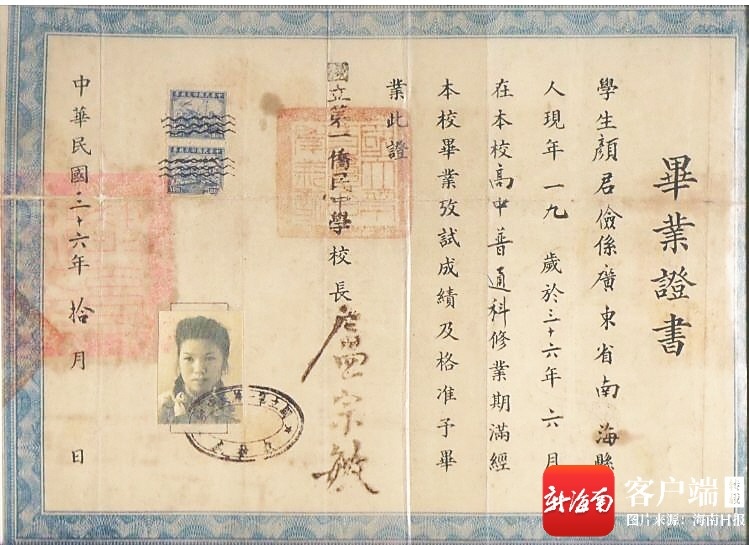 畢業證書
學生顏君儉係廣東省南海縣
人現年一九歲於三十六年六月
在本校高中普通科修業期滿經
本校畢業攷試成績及格准予畢
業此證
國立第一僑民中學校長盧宗敏
中華民國三十六年拾月 日
新海南
客户端
图片来源：海南日报